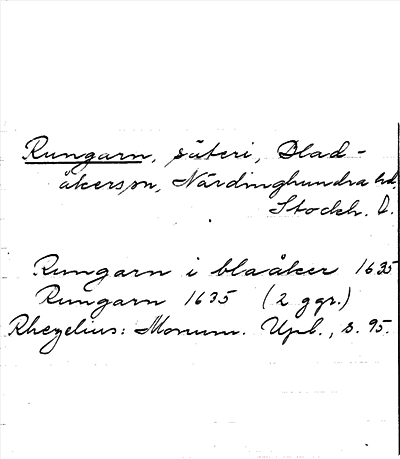 Rungarn, säteri, Blad-
åkers sn, Närdinghundra hd,
Stockh. l.
Rungarn i blaåker 1635
Rungarn 1635 (2 ggr.)
Rhezelius: Monum. Upl., s. 95.